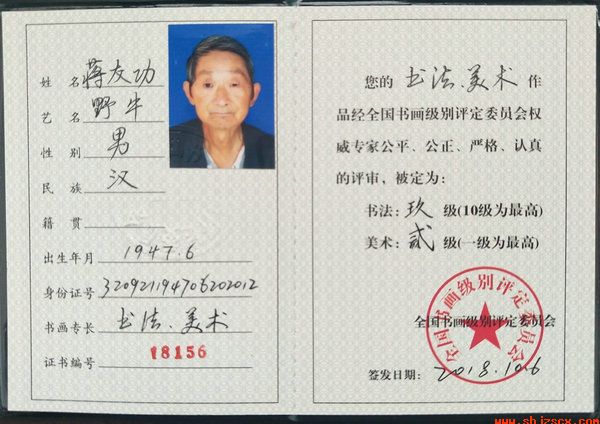 姓 名 蒋友功
艺 名 野牛
性 别 男
民 族 汉
籍 贯
出生年月 1947.6
身份证号 320921194706202012
书画专长 书法、美术
证书编号 18156
您的 书法、美术 作
品经全国书画级别评定委员会权
威专家公平、公正、严格、认真
的评审，被定为：
书法：玖 级(10级为最高)
美术：贰 级(一级为最高)
全国书画级别评定委员会
全国书画级别评定委员会
签发日期： 2018.10.6
www.shjzscx.com